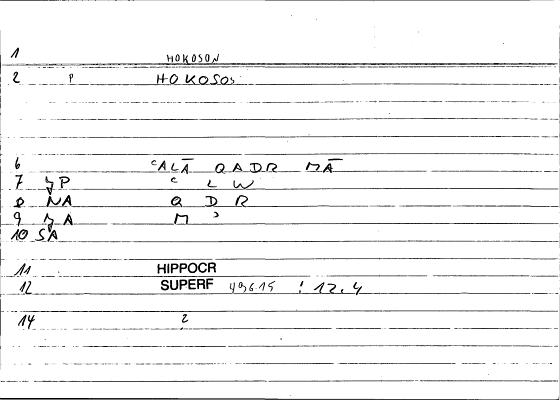 1 HOKOSON
2 P HOKOSOS
6 ʿALĀ QADR MĀ
7 ȜP ʿ L W
8 NA Q D R
9 ȜA M ʾ
10 SA
11 HIPPOCR
12 SUPERF 49,6.15 ! 12.4
14 ?